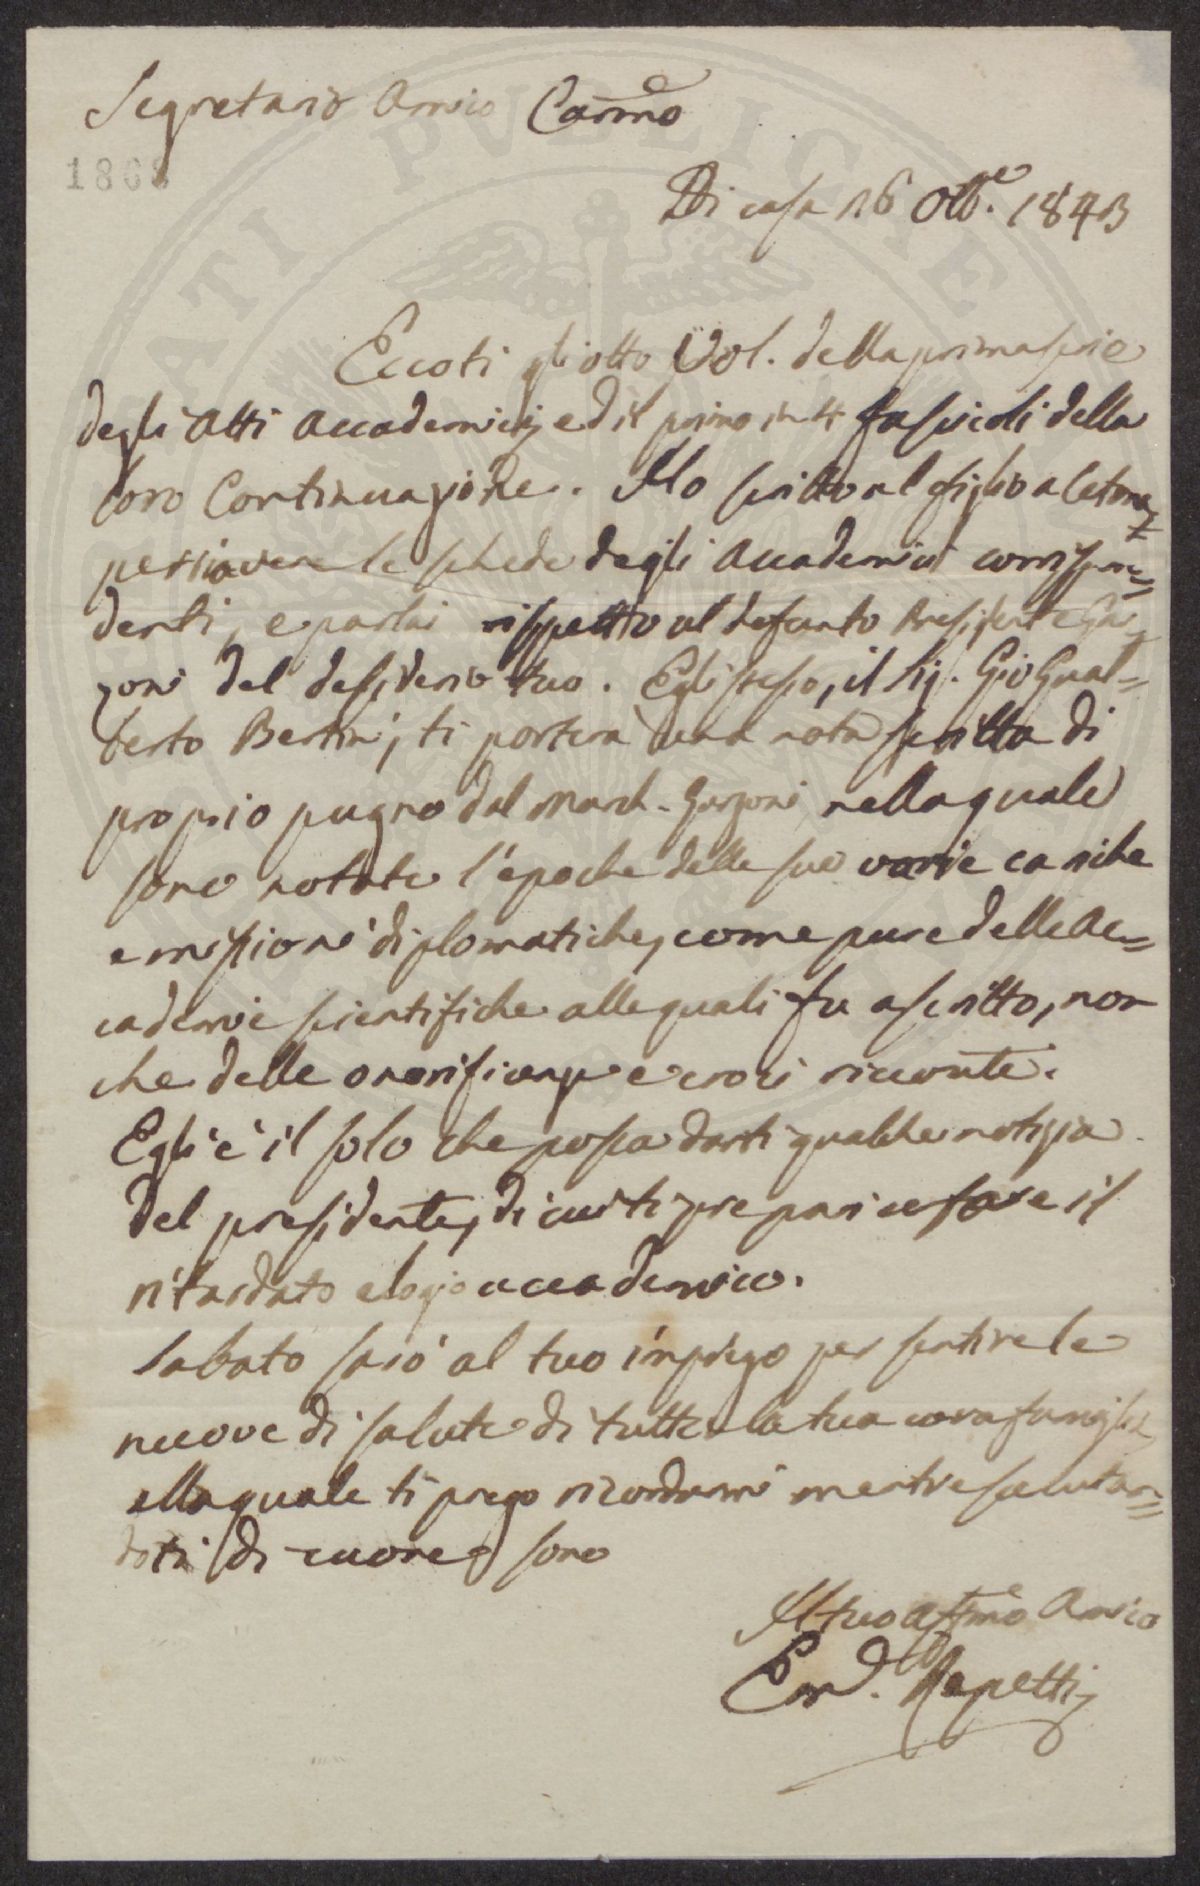 Segretario Amico Carmo
1868
Di casa 16 Otte. 1843
Eccoti gli otto Vol. della prima serie
degli Atti Accademici, ed il primo in 4 fascicoli della
loro Continuazione. Ho scritto al figlio a Cetona,
per riavere le schede degli Accademici corrispon=
denti, e parlai rispetto al defunto Presidente Gar=
zoni del desiderio tuo. Egli stesso, il Sig. Gio Gual=
berto Bertini, ti porterà una nota scritta di
proprio pugno dal March. Garzoni nella quale
sono notate l'epoche delle sue varie cariche
e missioni diplomatiche, come pure delle Ac=
cademie scientifiche alle quali fu ascritto, non
che delle onorificenze e croci ricevute.
Egli è il solo che possa darti qualche notizia
del presidente, di cui ti prepari a fare il
ritardato elogio accademico.
Sabato sarò al tuo impiego per sentire le
nuove di salute di tutta la tua cara famiglia,
alla quale ti prego ricordarmi mentre salutan=
doti di cuore sono
Il tuo affmo Amico
Em. Repetti